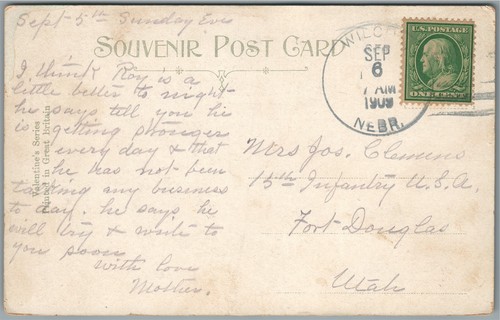 Sept 5th Sunday Eve
SOUVENIR POST CARD
I think Roy is a
little better to night
he says tell you he
is getting stronger
every day & that
he has not been
tasting any business
to day. he says he
will try & write to
you soon
with love
Mother.
Valentine's Series
Printed in Great Britain
NEBR.
SEP
6
7 AM
1909
U.S. POSTAGE
ONE CENT
Mrs Jos. Clemens
15th Infantry U.S.A.
Fort Douglas
Utah